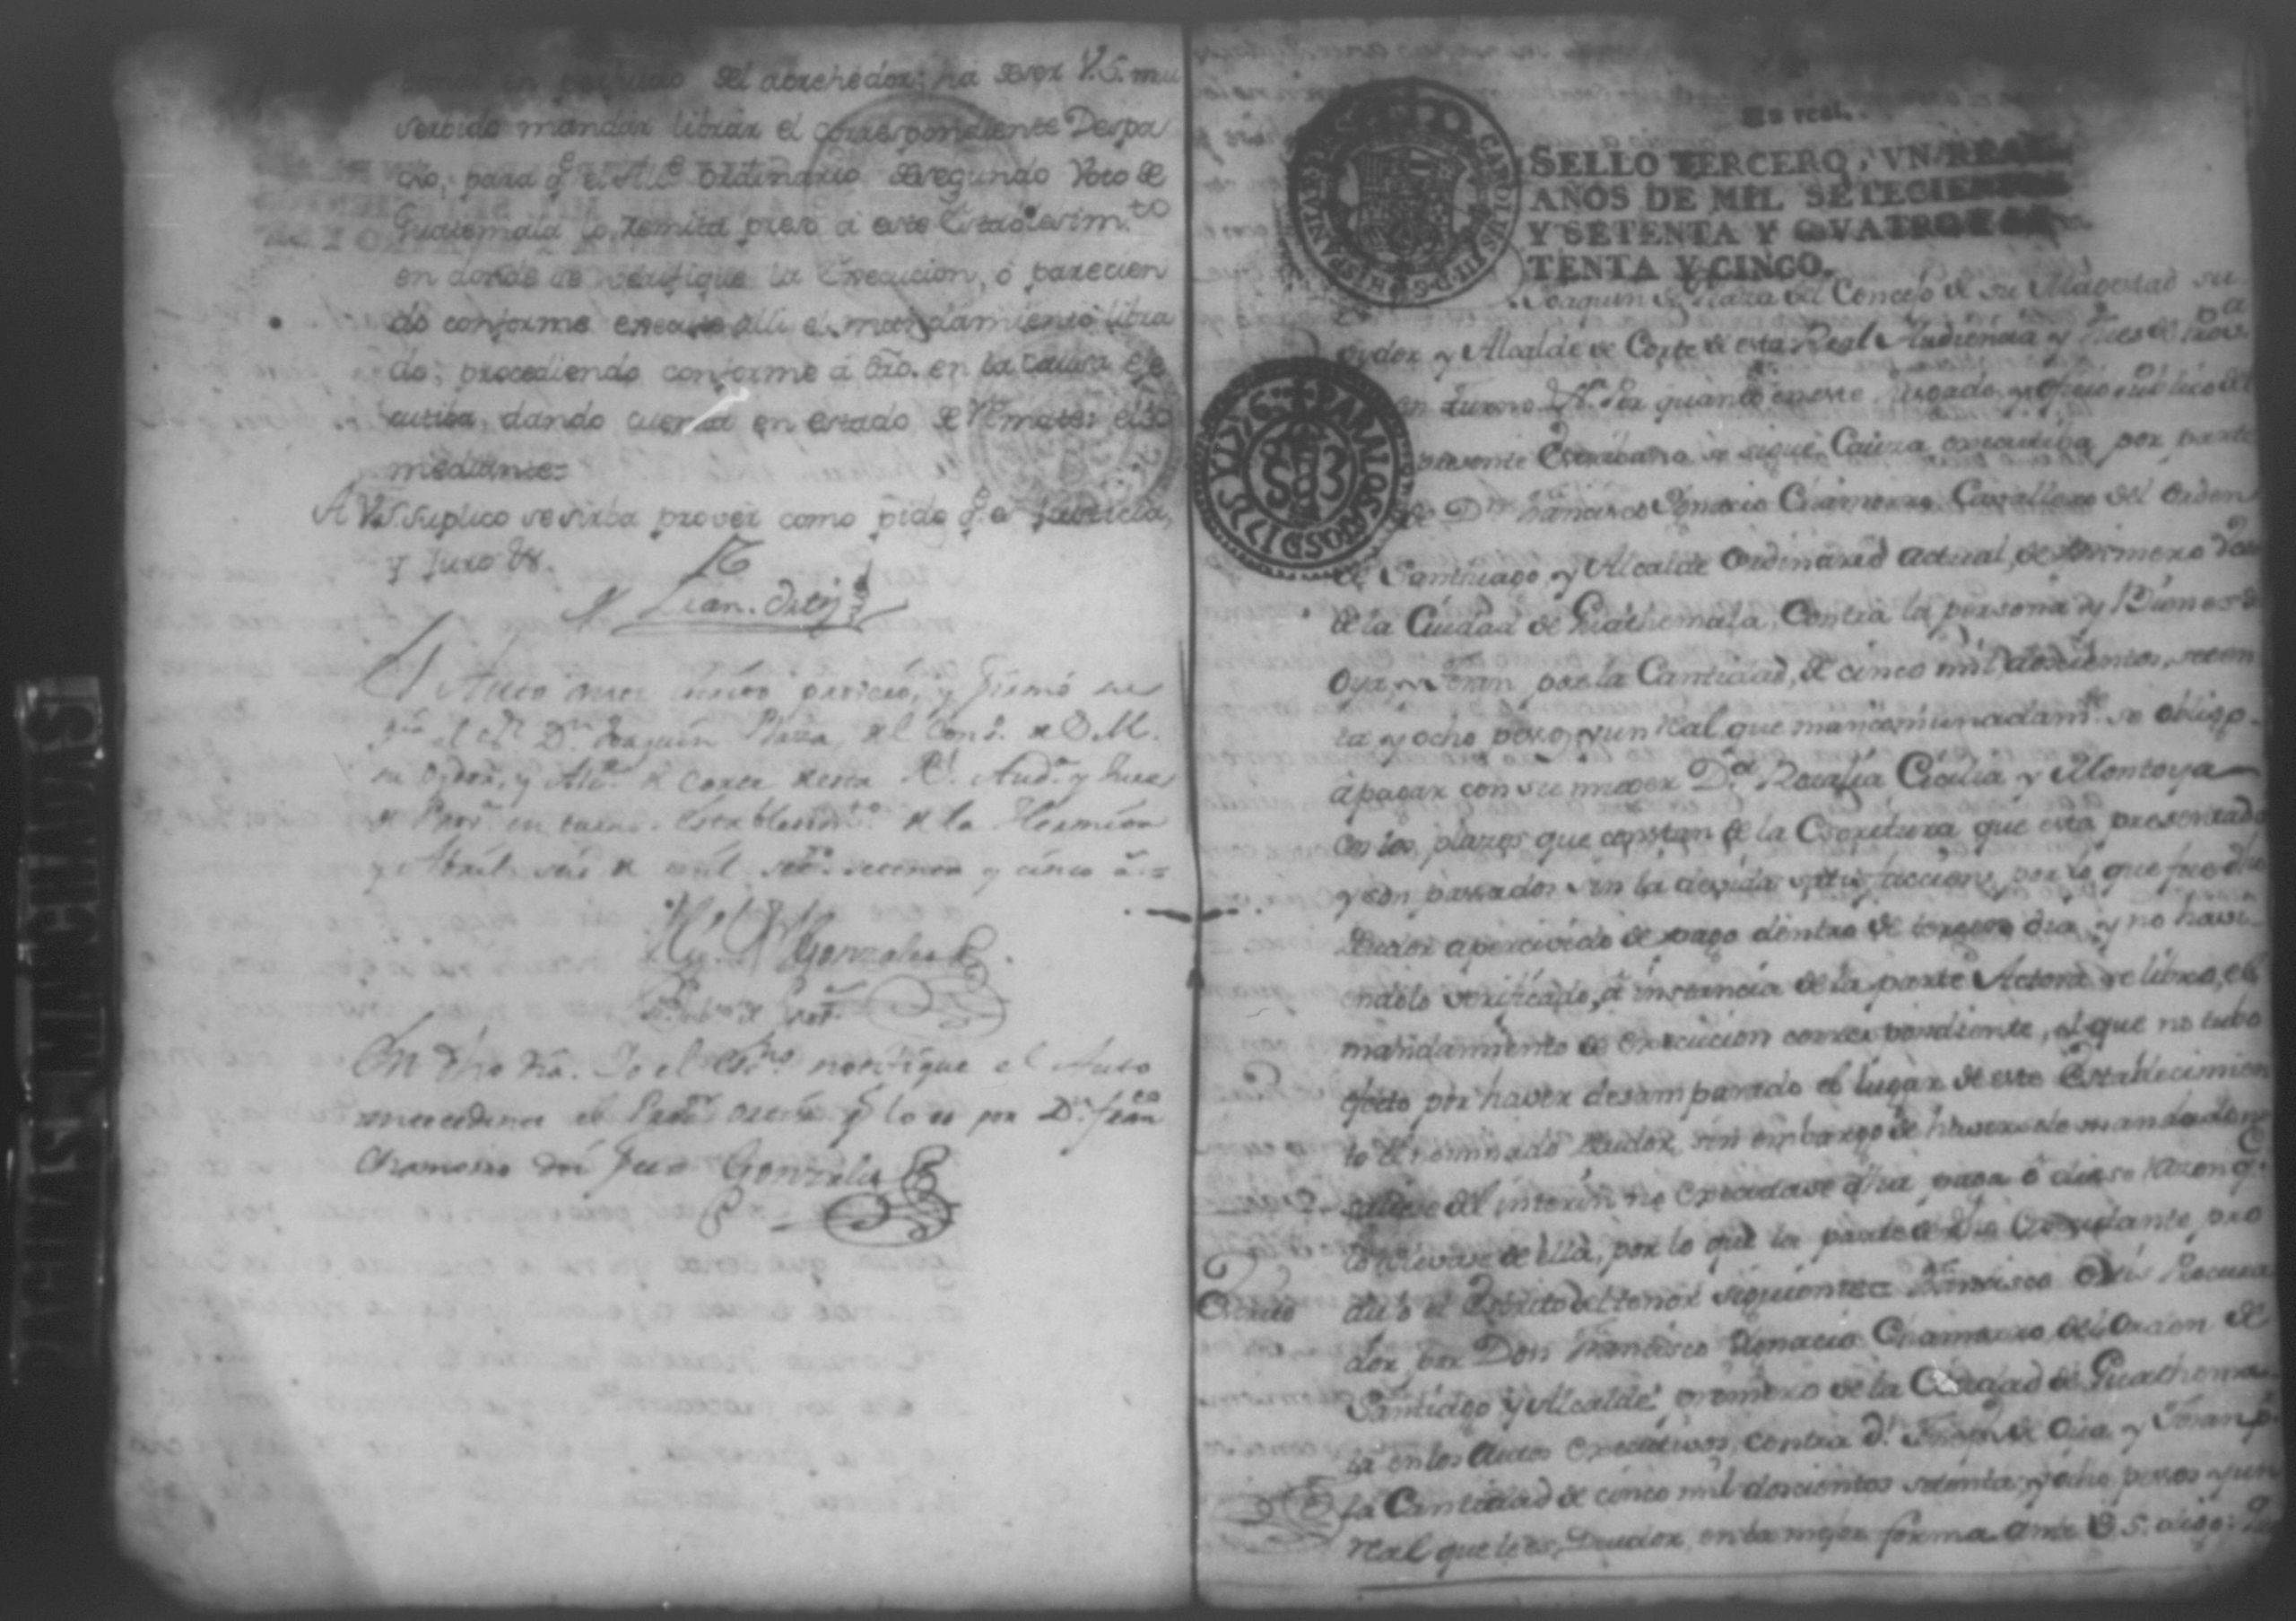 en perjuicio del acrehedor: ha de ser V.S. mui
servido mandar librar el correspondiente Despa
cho, para q.e el Alc.e ordinario de segundo Voto de
Guatemala lo remita preso á este Establesim.to
en donde se verifique la Execucion, ó parecien
do conforme execute alli el mandamiento libra
do; procediendo conforme á dro. en la causa exe
cutiba, dando cuenta en estado de Remate:
mediante=
A V.S. suplico se sirba prover como pido q.e es Justicia,
y Juro &.
Fran. Ortis
El Auto proveio, y firmó su
el S.r D.n Joaquin Plaza, del Cons.o de S.M.
su Oydor, y Alc.e de Corte de esta R.l Aud.a y Juez
de Prov.a en turno. Establesim.to de la Hermita
y Abril seis de mil set.s setenta y cinco a.s=
Gonzales
En dho dia. Yo el Ess.no notifique el Auto
antecedente al Proc.r Ortis q.e lo es por D.n Fran.co
Chamorro doi fee= Gonzales
Un real.
SELLO TERCERO, VN REAL
AÑOS DE MIL SETECIENTOS
Y SETENTA Y QVATRO Y SE
TENTA Y CINCO.
CAROLUS III D G HISPANIAR
PARA LOS AÑOS D 1776 Y 77
S 3
Joaquin de Plaza del Concejo de su Magestad su
oydor y Alcalde de Corte de esta Real Audiencia y Jues de Prov.a
en turno &.a Por quanto en este Jusgado, y oficio Publico del
presente Escribano se sigue Causa executiva por parte
de D.n Francisco Ignacio Chamorro Cavallero del orden
de Santhiago, y Alcalde Ordinario actual, de primero voto
de la Ciudad de Guathemala, Contra la persona y Bienes de
Oya, y Teran por la Cantidad, de cinco mil doscientos, seten
ta y ocho pesos y un real que mancomunadam.te se obligo
apagar con su muger D.a Rosalia Cicilia y Montoya
en los plazos que constan de la Escritura que está presentada
y son pasados sin la devida satisfaccion, por lo que fue dho
Deudor apercivido de pago dentro de tercero dia, y no havi
endolo verificado, á instancia de la parte Actora se libró, el
mandamiento de execucion correspondiente, el que no tubo
efecto por haver desamparado el lugar de este Establecimien
to el nominado Deudor, sin embargo de haversele mandado no
saliese del interin no executase dha paga ó diese razon q.e
lo relevase de ella, por lo que la parte de dho Executante, pro
dujo el Escrito del tenor siguiente= Francisco Ortis Procura
Escrito
dor por Don Francisco Ignacio Chamorro del Orden de
Santiago y Alcalde primero de la Ciudad de Guathema
la en los Autos executivos contra d.n Joseph de Oia y Teran p.r
la Cantidad de cinco mil doscientos setenta y ocho pesos y un
real que le es Deudor, en la mejor forma ante V.S. digo: Que
PACINAS MANCHADAS